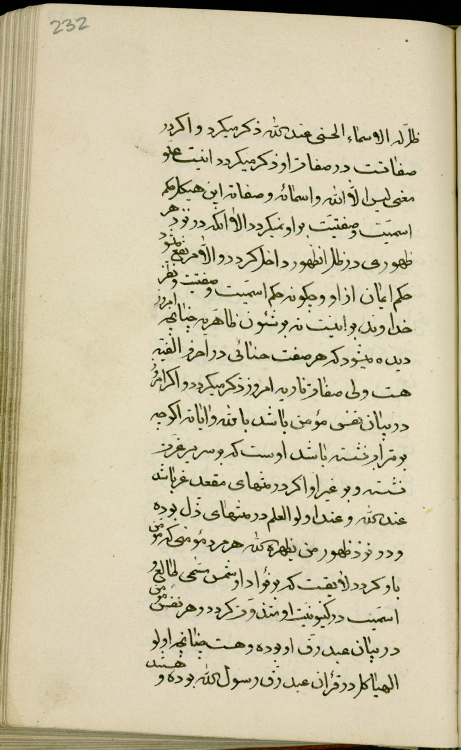 232
ظل له الاسماء الحسنی عند الله ذکر میکردد و اکر در
صفاتست در صفات او ذکر میکردد اینست علو
معنی لیس الا الله و اسمائه و صفاته این هیکل که حکم
اسمیت و صفتیت بر او نمیکردد الا آنکه در نزد هر
ظهوری در ظل انظهور داخل کردد و الا مرتفع میشود
حکم ایمان از او و چکونه حکم اسمیت و صفتیت و نظر
خداوند بر اینست نه بر شئون ظاهریه چنانچه امروز
دیده میشود که هر صفت حسنائی در احرف الفیه
هست ولی صفات ناریه امروز ذکر میکردد و اکر امروز
در بیان نفسی مؤمن باشد بالله و ایاته اکر چه
بر تراب نشسته باشد اوست که بر سریر عز
نشسته و بر غیر او اکر در منتهای مقعد عز باشد
عند الله و عند اولو العلم در منتهای ذل بوده
و در نزد ظهور من یظهره الله هر مرد مؤمنی که مؤمن
باو کردد لایقست که بر فؤاد او شمس مسمی طالع و
اسمیت در کینونیت او متذوت کردد و هر نفس مؤمن
در بیان عبد رق او بوده و هست چنانچه اولو
الهیاکل در قران عبد رق رسول الله بوده و هستند